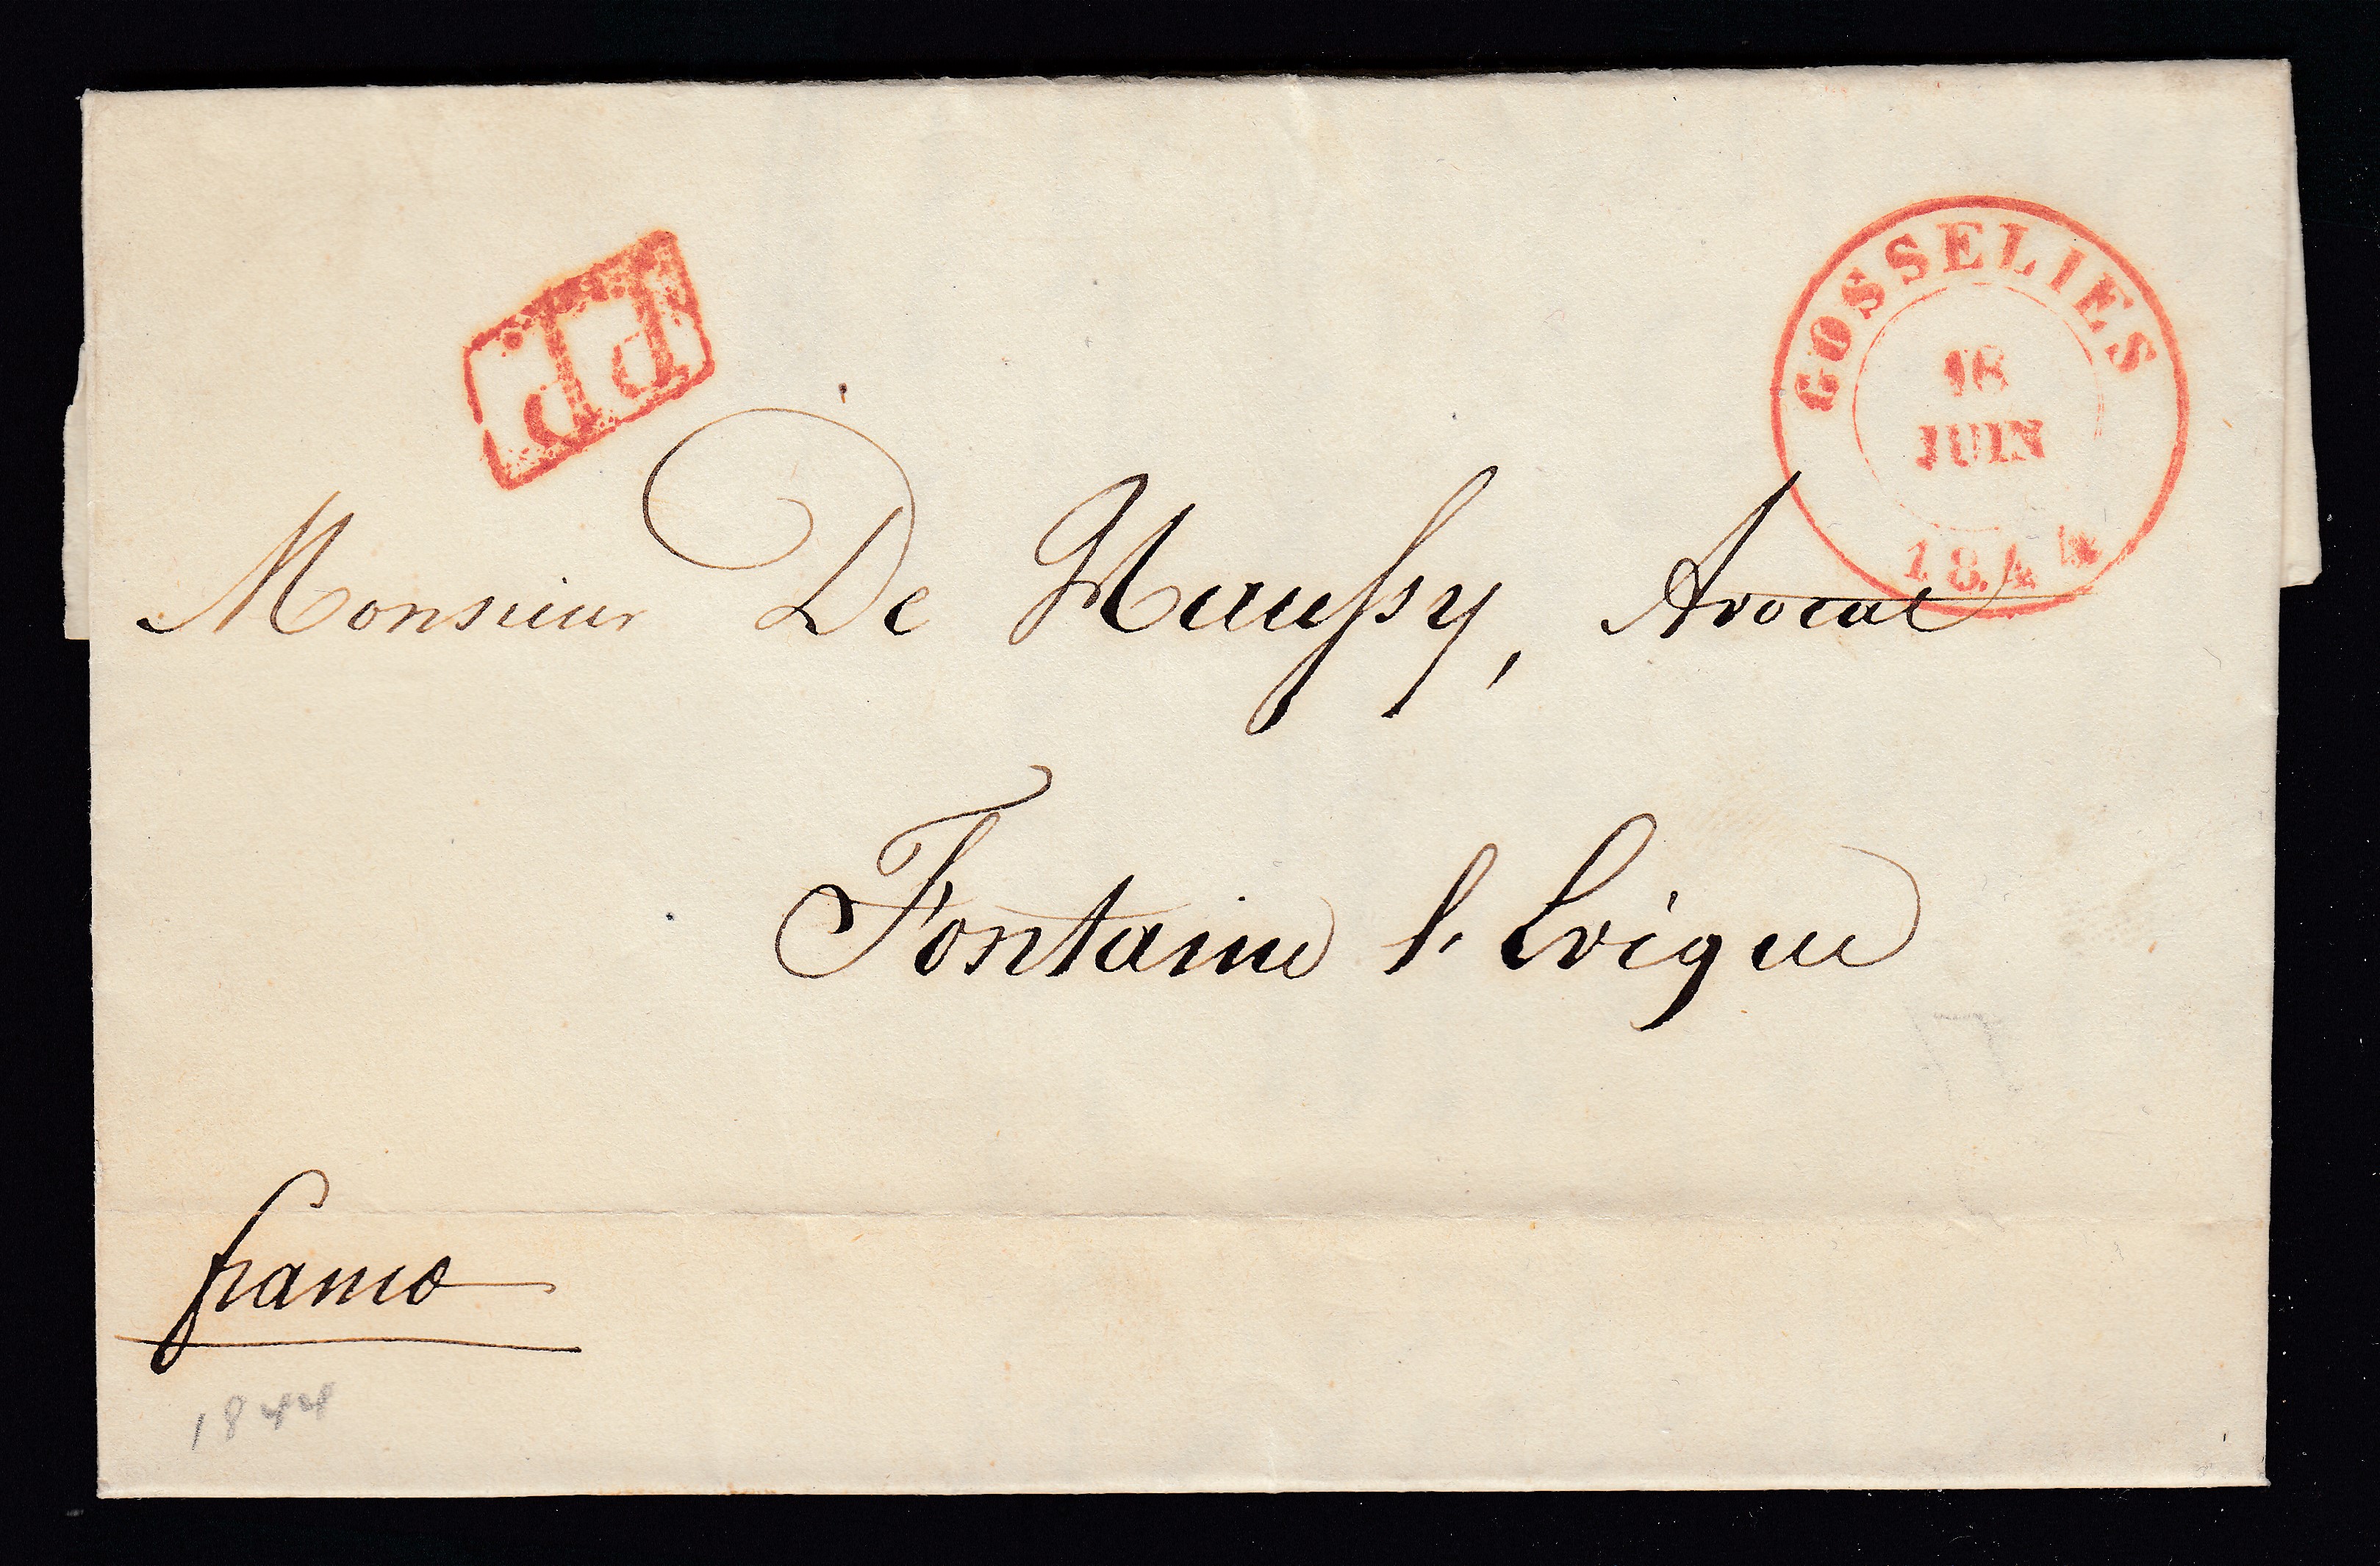 PP
GOSSELIES
18
JUIN
1844
Monsieur De Haussy, Avocat
Fontaine l'Evêque
franco
1844